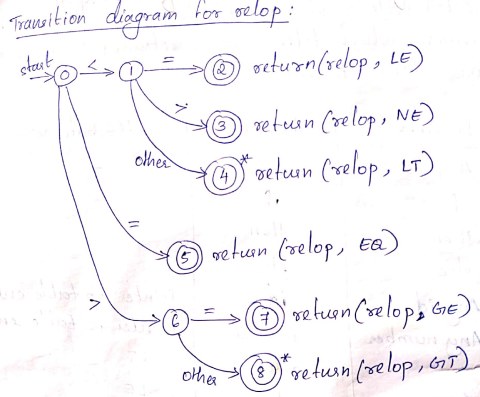 Transition diagram for relop:
start 0 < 1 = 2 return(relop, LE)
> 3 return (relop, NE)
other 4 * return (relop, LT)
= 5 return (relop, EQ)
> 6 = 7 return (relop, GE)
other 8 * return (relop, GT)